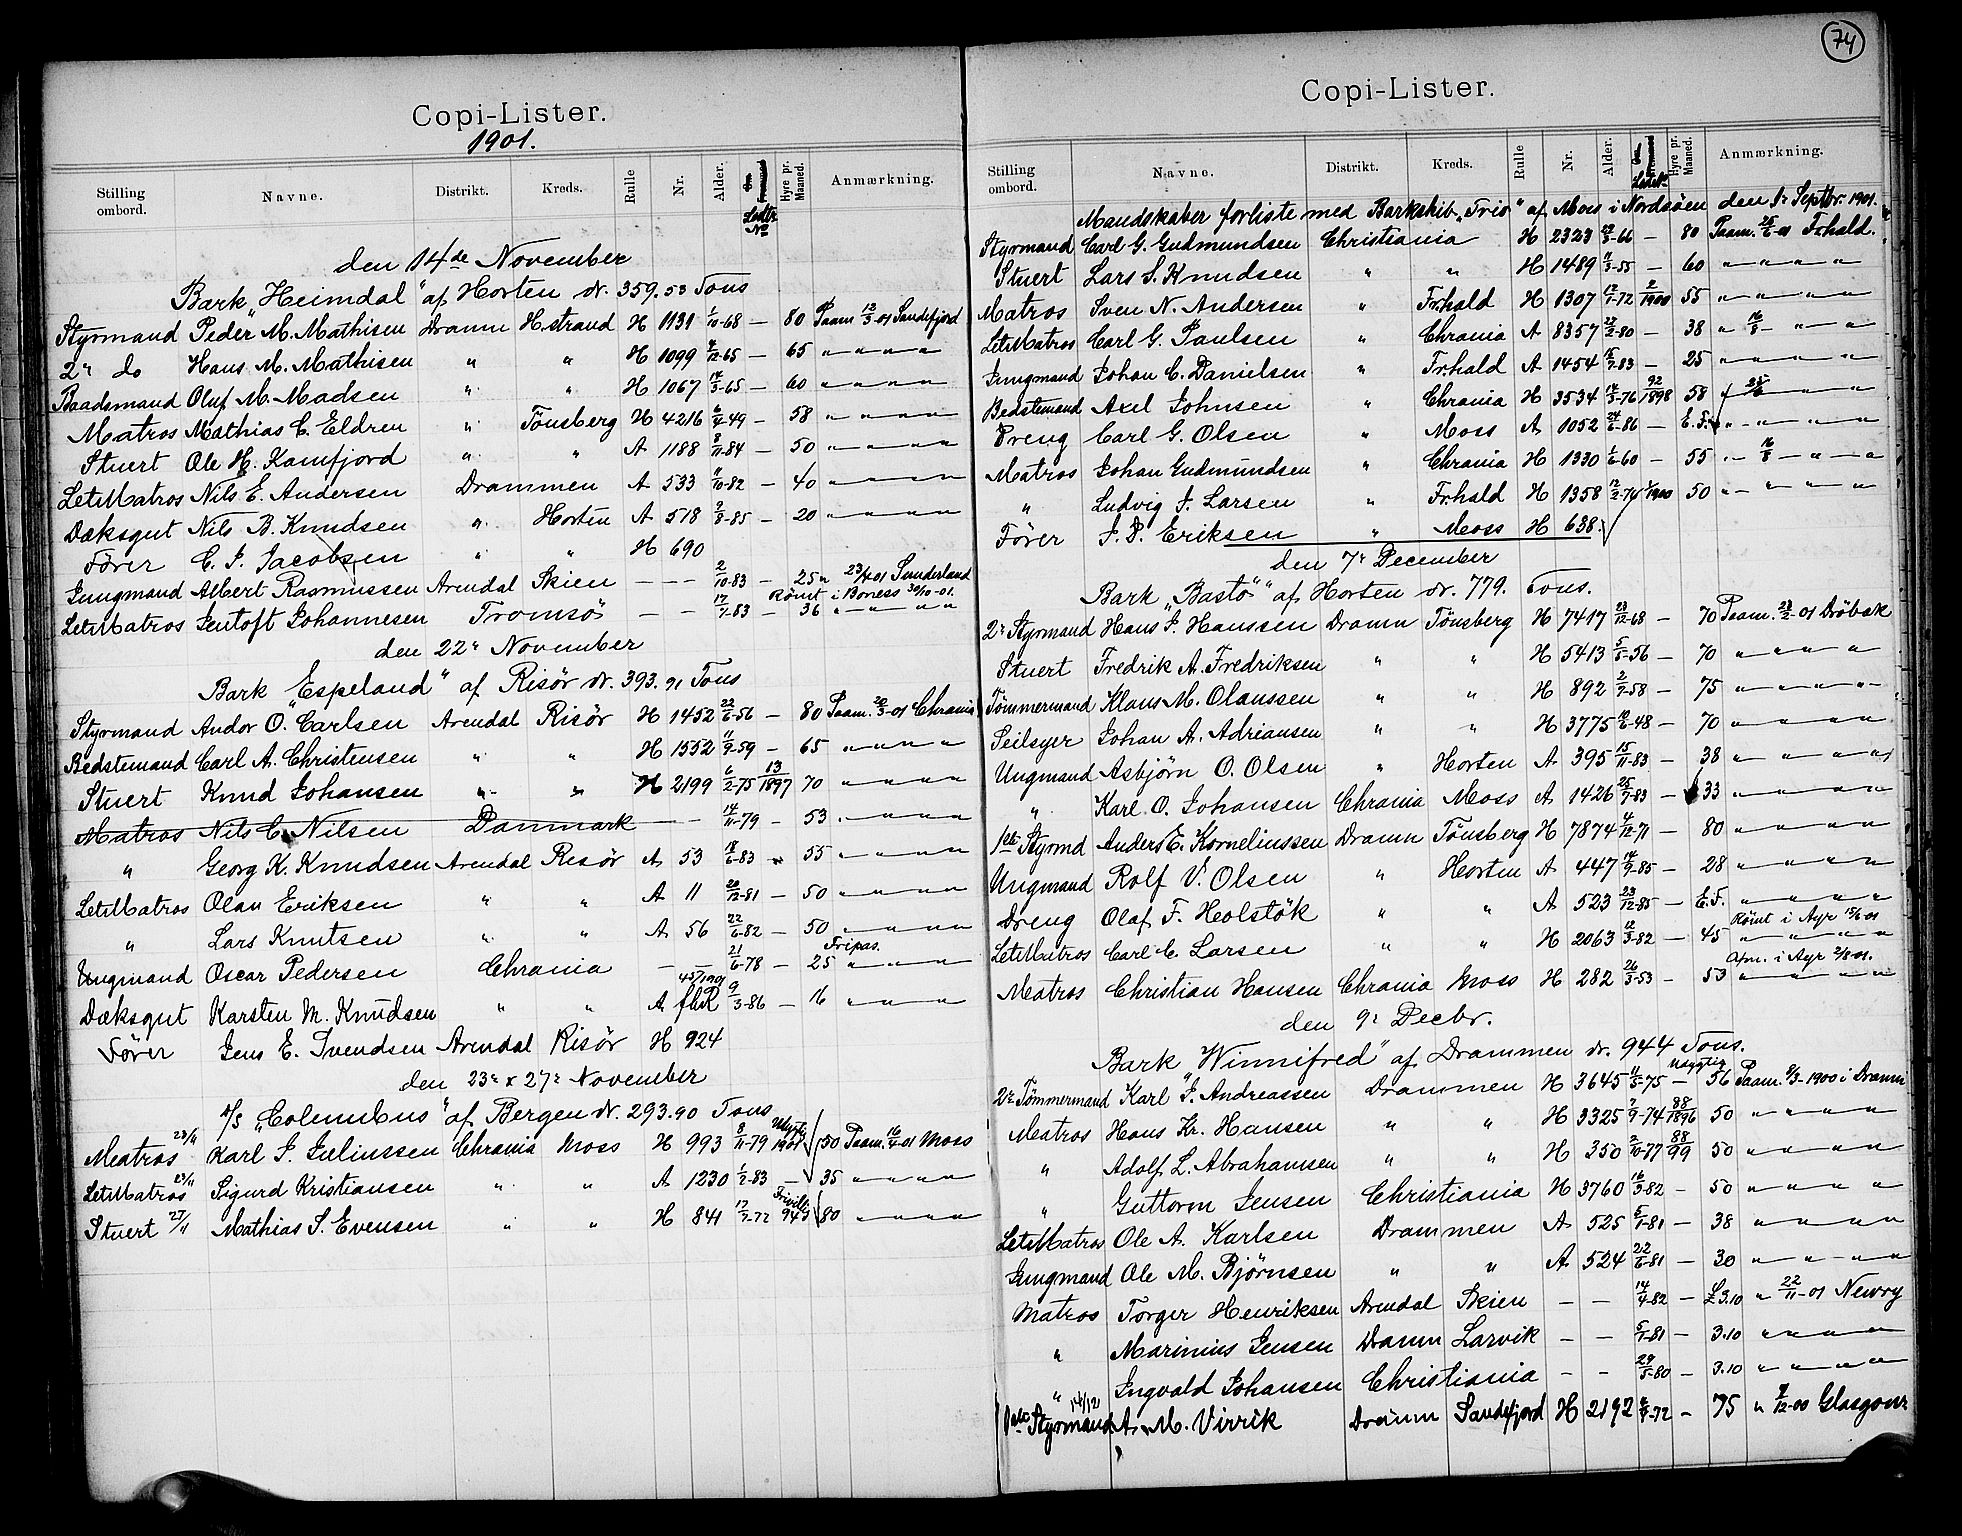 74
Copi-Lister.
1901.
Stilling ombord. Navne. Distrikt. Kreds. Rulle Nr. Alder. Hyre pr. Maaned. Anmærkning.
den 14de November
Bark „Heimdal“ af Horten dr. 359.53 Tons
Styrmand Peder M. Mathisen Dramn H.strand H 1131 1/10-68 — 80 Paam 12/3-01 Sandefjord
2n do Hans M. Mathisen " " H 1099 4/12-65 — 65 " " " "
Baadsmand Oluf M. Madsen " " H 1067 14/3-65 — 60 " " " "
Matros Mathias C. Eldren " Tönsberg H 4216 6/4-49 — 58 " " " "
Stuert Ole H. Kamfjord " " A 1188 8/11-84 — 50 " " " "
LetMatros Nils E. Andersen Drammen A 533 11/10-82 — 40 " " " "
Dæksgut Nils B. Knudsen " Horten A 518 2/8-85 — 20 " " " "
Fører C. J. Jacobsen " " H 690
Jungmand Albert Rasmussen Arendal Skien — — 2/10-83 — 25 " 23/4-01 Sunderland
Römt i Boness 30/10-01.
LetMatros Jentoft Johannesen Tromsö — — 17/7-83 — 36 " " " "
den 22n November
Bark „Espeland“ af Risör dr. 393.91 Tons
Styrmand Andor O. Carlsen Arendal Risör H 1452 22/6-56 — 80 Paam. 20/3-01 Chrania
Bedstemand Carl A. Christensen " " H 1552 11/9-59 — 65 " " " "
Stuert Knud Johansen " " H 2199 6/2-75 13/1897 70 " " " "
Matros Nils C. Nilsen Danmark — — 14/11-79 — 53 " " " "
" Georg K. Knudsen Arendal Risör A 53 18/6-83 " 55 " " " "
LetMatros Olau Eriksen " " A 11 20/12-81 — 50 " " " "
" Lars Knutsen " " A 56 22/6-82 — 50 " " " "
Fripas.
Ungmand Oscar Pedersen Chrania — — 21/6-78 — 25 " " " "
Dæksgut Karsten M. Knudsen " " A 9/3-86 — 16 " " " "
Fører Jens E. Svendsen Arendal Risör H 924
den 23n & 27n November
„Columbus“ af Bergen dr. 293.90 Tons
Matros 23/11 Karl J. Julinssen Chrania Moss H 993 8/11-79 1901 50 Paam. 16/4-01 Moss
LetMatros 23/11 Sigurd Kristiansen " " A 1230 1/2-83 — 35 " " " "
Stuert 27/11 Mathias S. Evensen " " H 841 17/7-72 80 " " " "
Copi-Lister.
Stilling ombord. Navne. Distrikt. Kreds. Rulle Nr. Alder. Hyre pr. Maaned. Anmærkning.
Mandskaber forliste med Barkskib „Trio“ af Moss i Nordsöen den 1n Septbr. 1901.
Styrmand Carl G. Gudmundsen Christiania H 2323 29/3-66 — 80 Paam. 25/6-01 Frhald.
Stuert Lars S. Knudsen " " H 1489 11/3-55 — 60 " " " "
Matros Sven N. Andersen " Frhald H 1307 12/1-72 2/1900 55 " " " "
LetMatros Carl G. Paulsen " Chrania A 8357 27/2-80 — 38 " 16/8 " "
Jungmand Johan C. Danielsen " Frhald A 1454 15/7-83 — 25 " " " "
Bedstemand Axel Johnsen " Chrania H 3534 14/3-76 92/1898 58 " " "
Dreng Carl G. Olsen " Moss A 1052 24/6-86 — E.F. " " " "
Matros Johan Gudmundsen " Chrania H 1330 1/6-60 — 55 " 16/8 " "
" Ludvig J. Larsen " Frhald H 1358 12/2-74 1/1900 50 " " " "
Fører J. P. Eriksen " Moss H 638.
den 7n December
Bark „Bastö“ af Horten dr. 779. Tons.
2n Styrmand Hans J. Hanssen Dramn Tönsberg H 7417 23/12-68 — 70 Paam. 23/2-01 Dröbak
Stuert Fredrik A. Fredriksen " " H 5413 5/5-56 — 70 " " " "
Tömmermand Klaus M. Olanssen " " H 892 2/7-58 — 75 " " " "
Seilsyer Johan A. Adriansen " " H 3775 10/6-48 — 70 " " " "
Ungmand Asbjörn O. Olsen " Horten A 395 15/11-83 — 38 " " " "
" Karl O. Johansen Chrania Moss A 1426 25/7-83 — 33 " " " "
1ste Styrmd Anders E. Kornelinssen Dramn Tönsberg H 7874 4/12-71 — 80 " " " "
Ungmand Rolf V. Olsen " Horten A 447 14/9-85 — 28 " " " "
Dreng Olaf F. Holstök " " A 523 23/12-85 — E.F. " " " "
Römt i Ayr 15/6-01
LetMatros Carl C. Larsen " " H 2063 12/3-82 — 45 " " " "
Afm. i Ayr 21/8-01.
Matros Christian Hansen Chrania Moss H 282 26/3-53 — 53 " " " "
den 9n Decbr.
Bark „Winnifred“ af Drammen dr. 944 Tons.
2n Tömmermand Karl J. Andreassen Drammen H 3645 11/5-75 — 56 Paam. 9/3-1900 i Dramn
Matros Hans Kr. Hansen " " H 3325 7/9-74 88/1896 50 " " " "
" Adolf L. Abrahamsen " " H 350 2/10-77 88/99 50 " " " "
" Guttorm Jensen Christiania H 3760 16/3-82 — 50 " " " "
LetMatros Ole A. Karlsen Drammen A 525 5/1-81 — 38 " " " "
Jungmand Ole M. Björnsen " " A 524 22/6-81 — 30 " " " "
Matros Torger Henriksen Arendal Skien — — 14/4-82 — £3.10 " 22/11-01 Newry
" Marinius Jensen Dramn Larvik — — 5/1-81 — 3.10 " " " "
" Ingvald Johansen Christiania — — 29/5-80 — 3.10 " " " "
14/12
1ste Styrmand A. M. Virrik Dramn Sandefjord H 2192 6/9-72 — 75 " 7/12-00 Glasgow